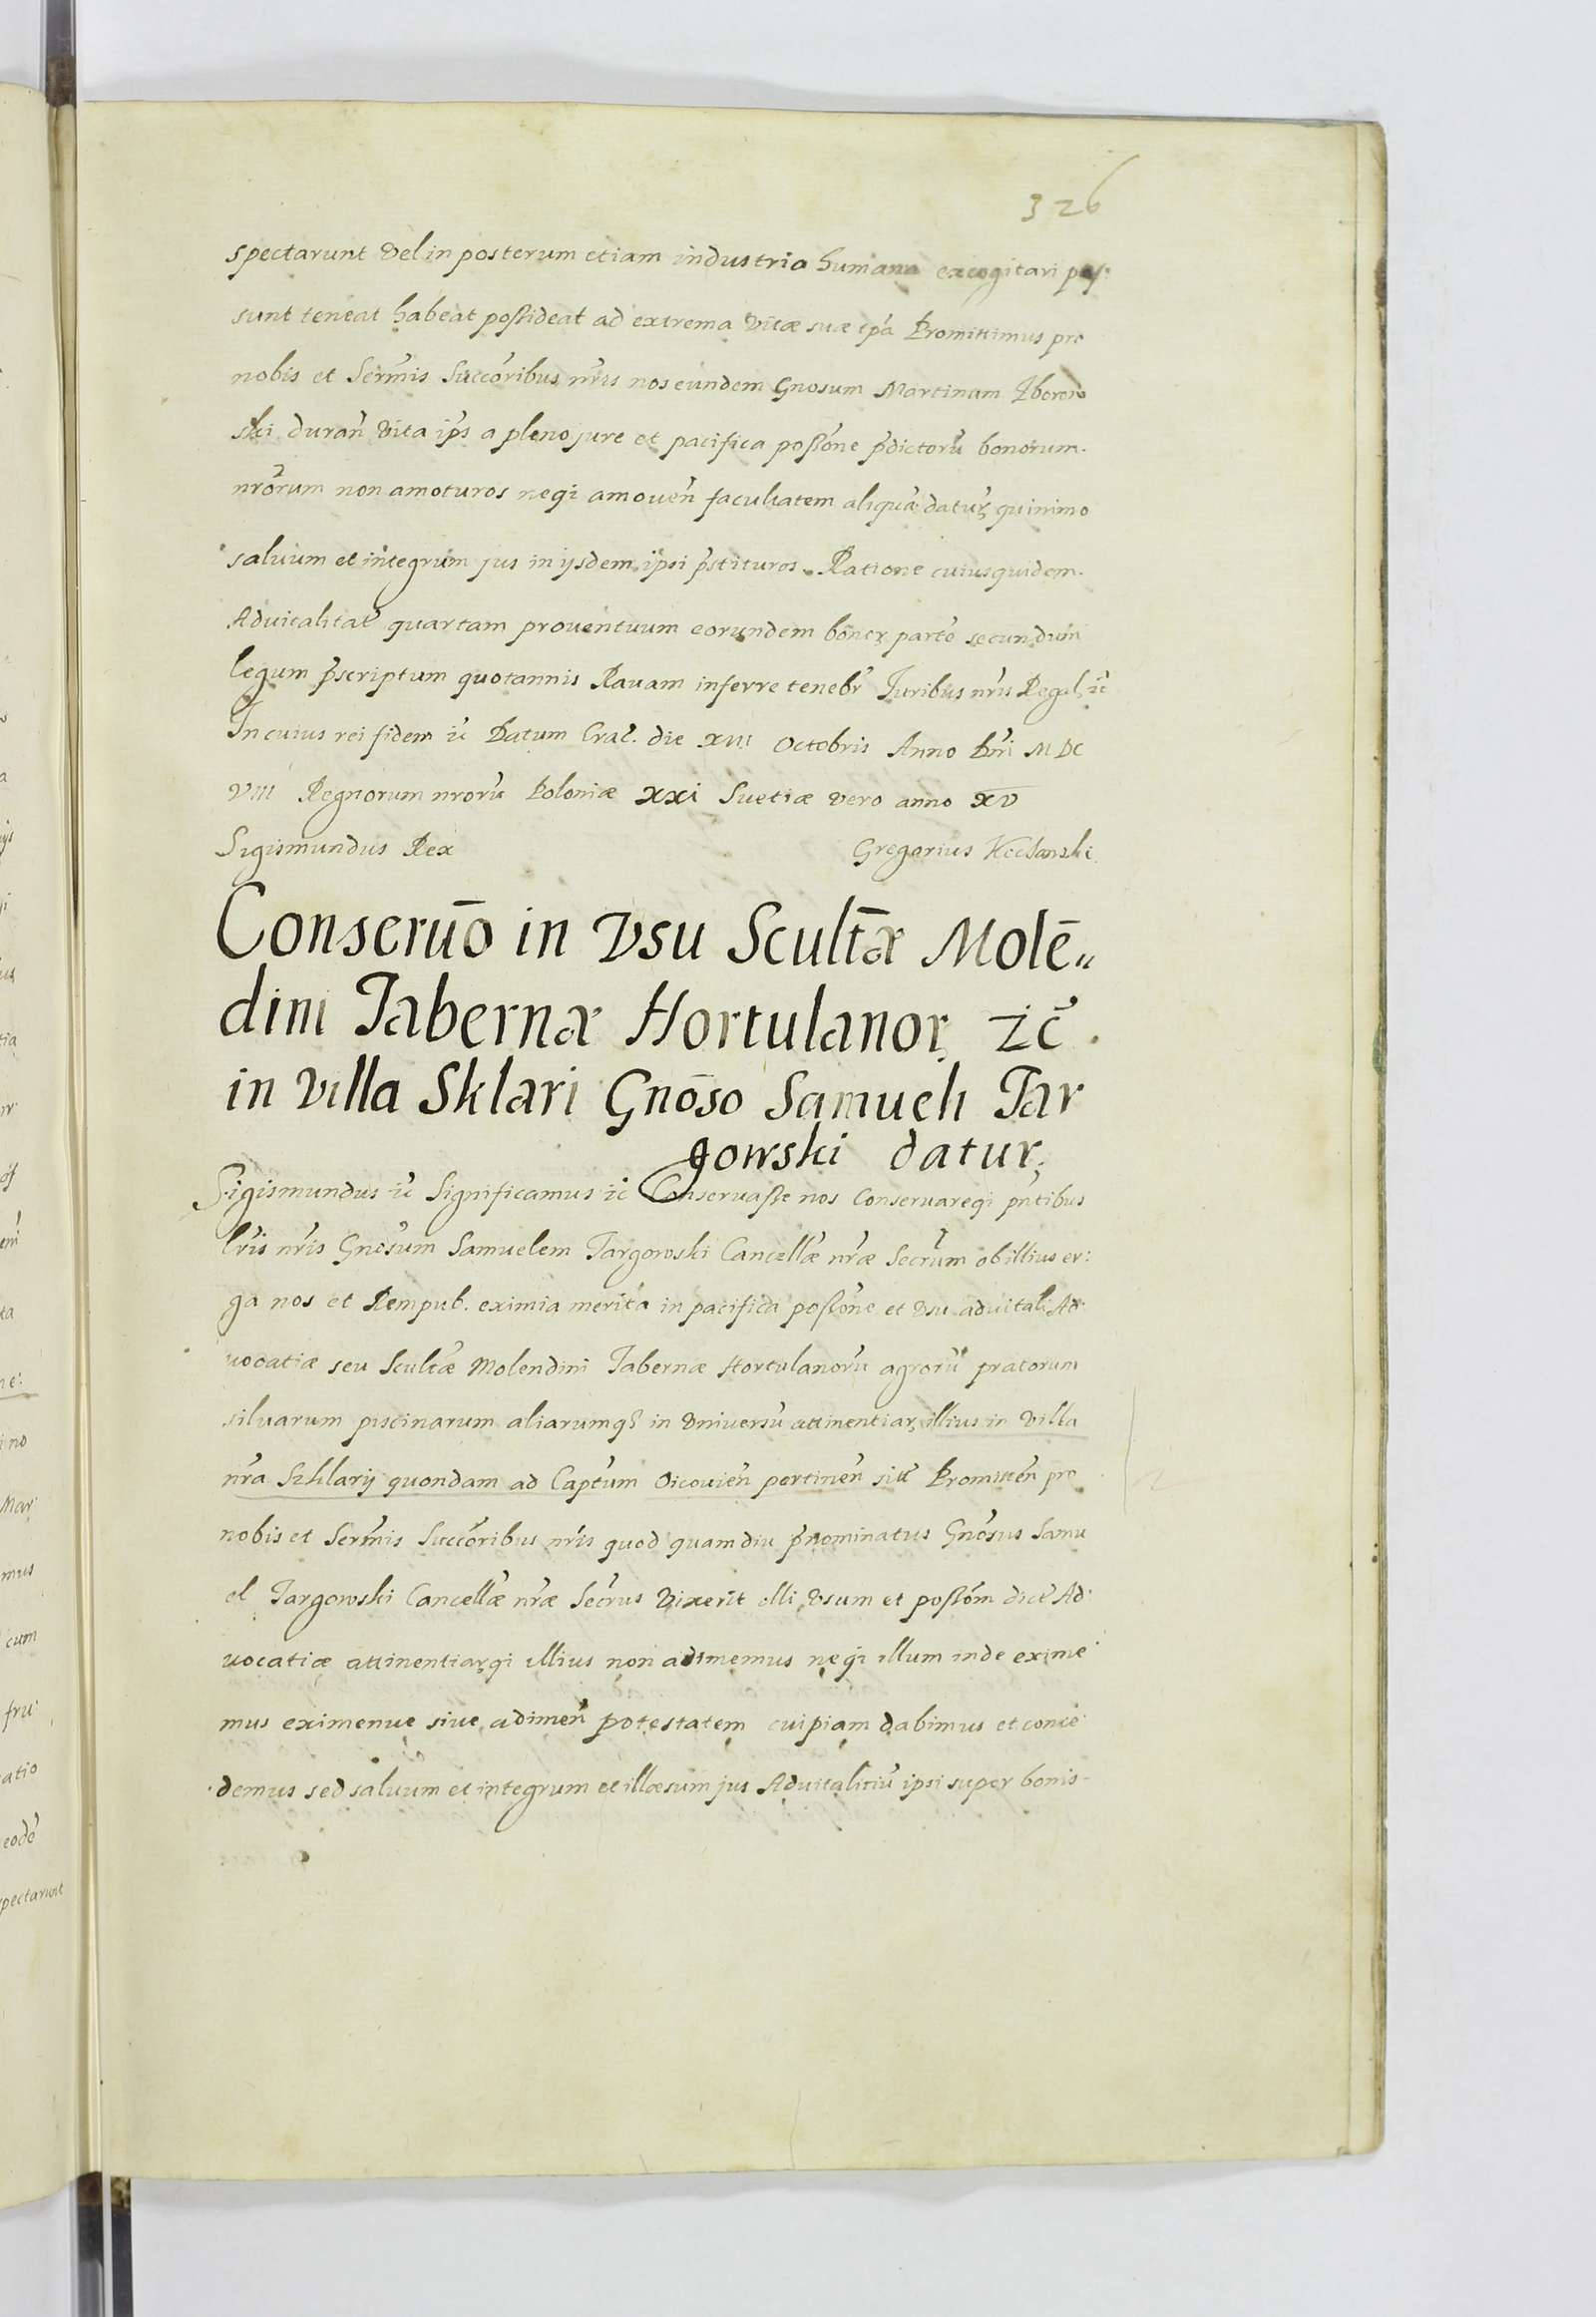 326
spectarunt vel in posterum etiam industria humana excogitari pos:
sunt teneat habeat possideat ad extrema vitæ suæ tpã Promittimus pro
nobis et Serm̃is Succõribus nr̃is nos eundem Gnosum Martinum
ski durañ vita ip̃s a pleno jure et pacifica possõne p̃dictorũ bonorum.
nrõrum non amoturos neq3 amoueñ facultatem aliquã datur̃ quinimo
saluum et integrum jus in ijsdem ipsi p̃stituros. Ratione cuiusquidem.
Aduitalitat̃ quartam prouentuum eorundem bonor̨ partẽ secundum
legum p̃scriptum quotannis Rauam inferre tenebr̃ Juribus nr̃is Regal; zc̃
In cuius rei fidem zc̃ Datum Crac̃. die XVIII Octobris Anno Dñi M DC
VIII Regnorum nrorũ Poloniæ XXI Suetiæ vero anno XV
Sigismundus Rex Gregorius
Conseruõ in Vsu Scultæ̃ Molẽ„
dini Tabernæ Hortulanor̨ zc̃.
in Villa Sklari Gnõso Samueli Tar
gowski datur;
Sigismundus zc̃ Significamus zc̃ Conseruasse nos Conseruareq3 pñtibus
lr̃is nr̃is Gnõsum Samuelem Targowski Cancellæ̃ nr̃æ Secrũm ob illius er:
ga nos et Rempub. eximia merita in pacifica possõne et vsu aduitali Ad
uocatiæ seu Scultæ̃ Molendini Tabernæ Hortulanorũ agrorũ pratorum
siluarum piscinarum aliarumq3 in vniversũ attinentiar̨ illius in villa
nr̃a Szklarij quondam ad Captũm Oicouieñ pertineñ sit̃ Promitteñ pro
nobis et Serm̃is Succõribus nr̃is quod quamdiu p̃nominatus Gnõsus Samu
el Targowski Cancellæ̃ nr̃æ Secr̃us vixerit illi vsum et possõm dict̃ Ad
uocatiæ attinentiar̨q3 illius non adimemus neq3 illum inde exime
mus eximenue siue adimeñ potestatem cuipiam dabimus et conce
demus sed saluum et integrum et illæsum jus Aduitalitiũ ipsi super bonis